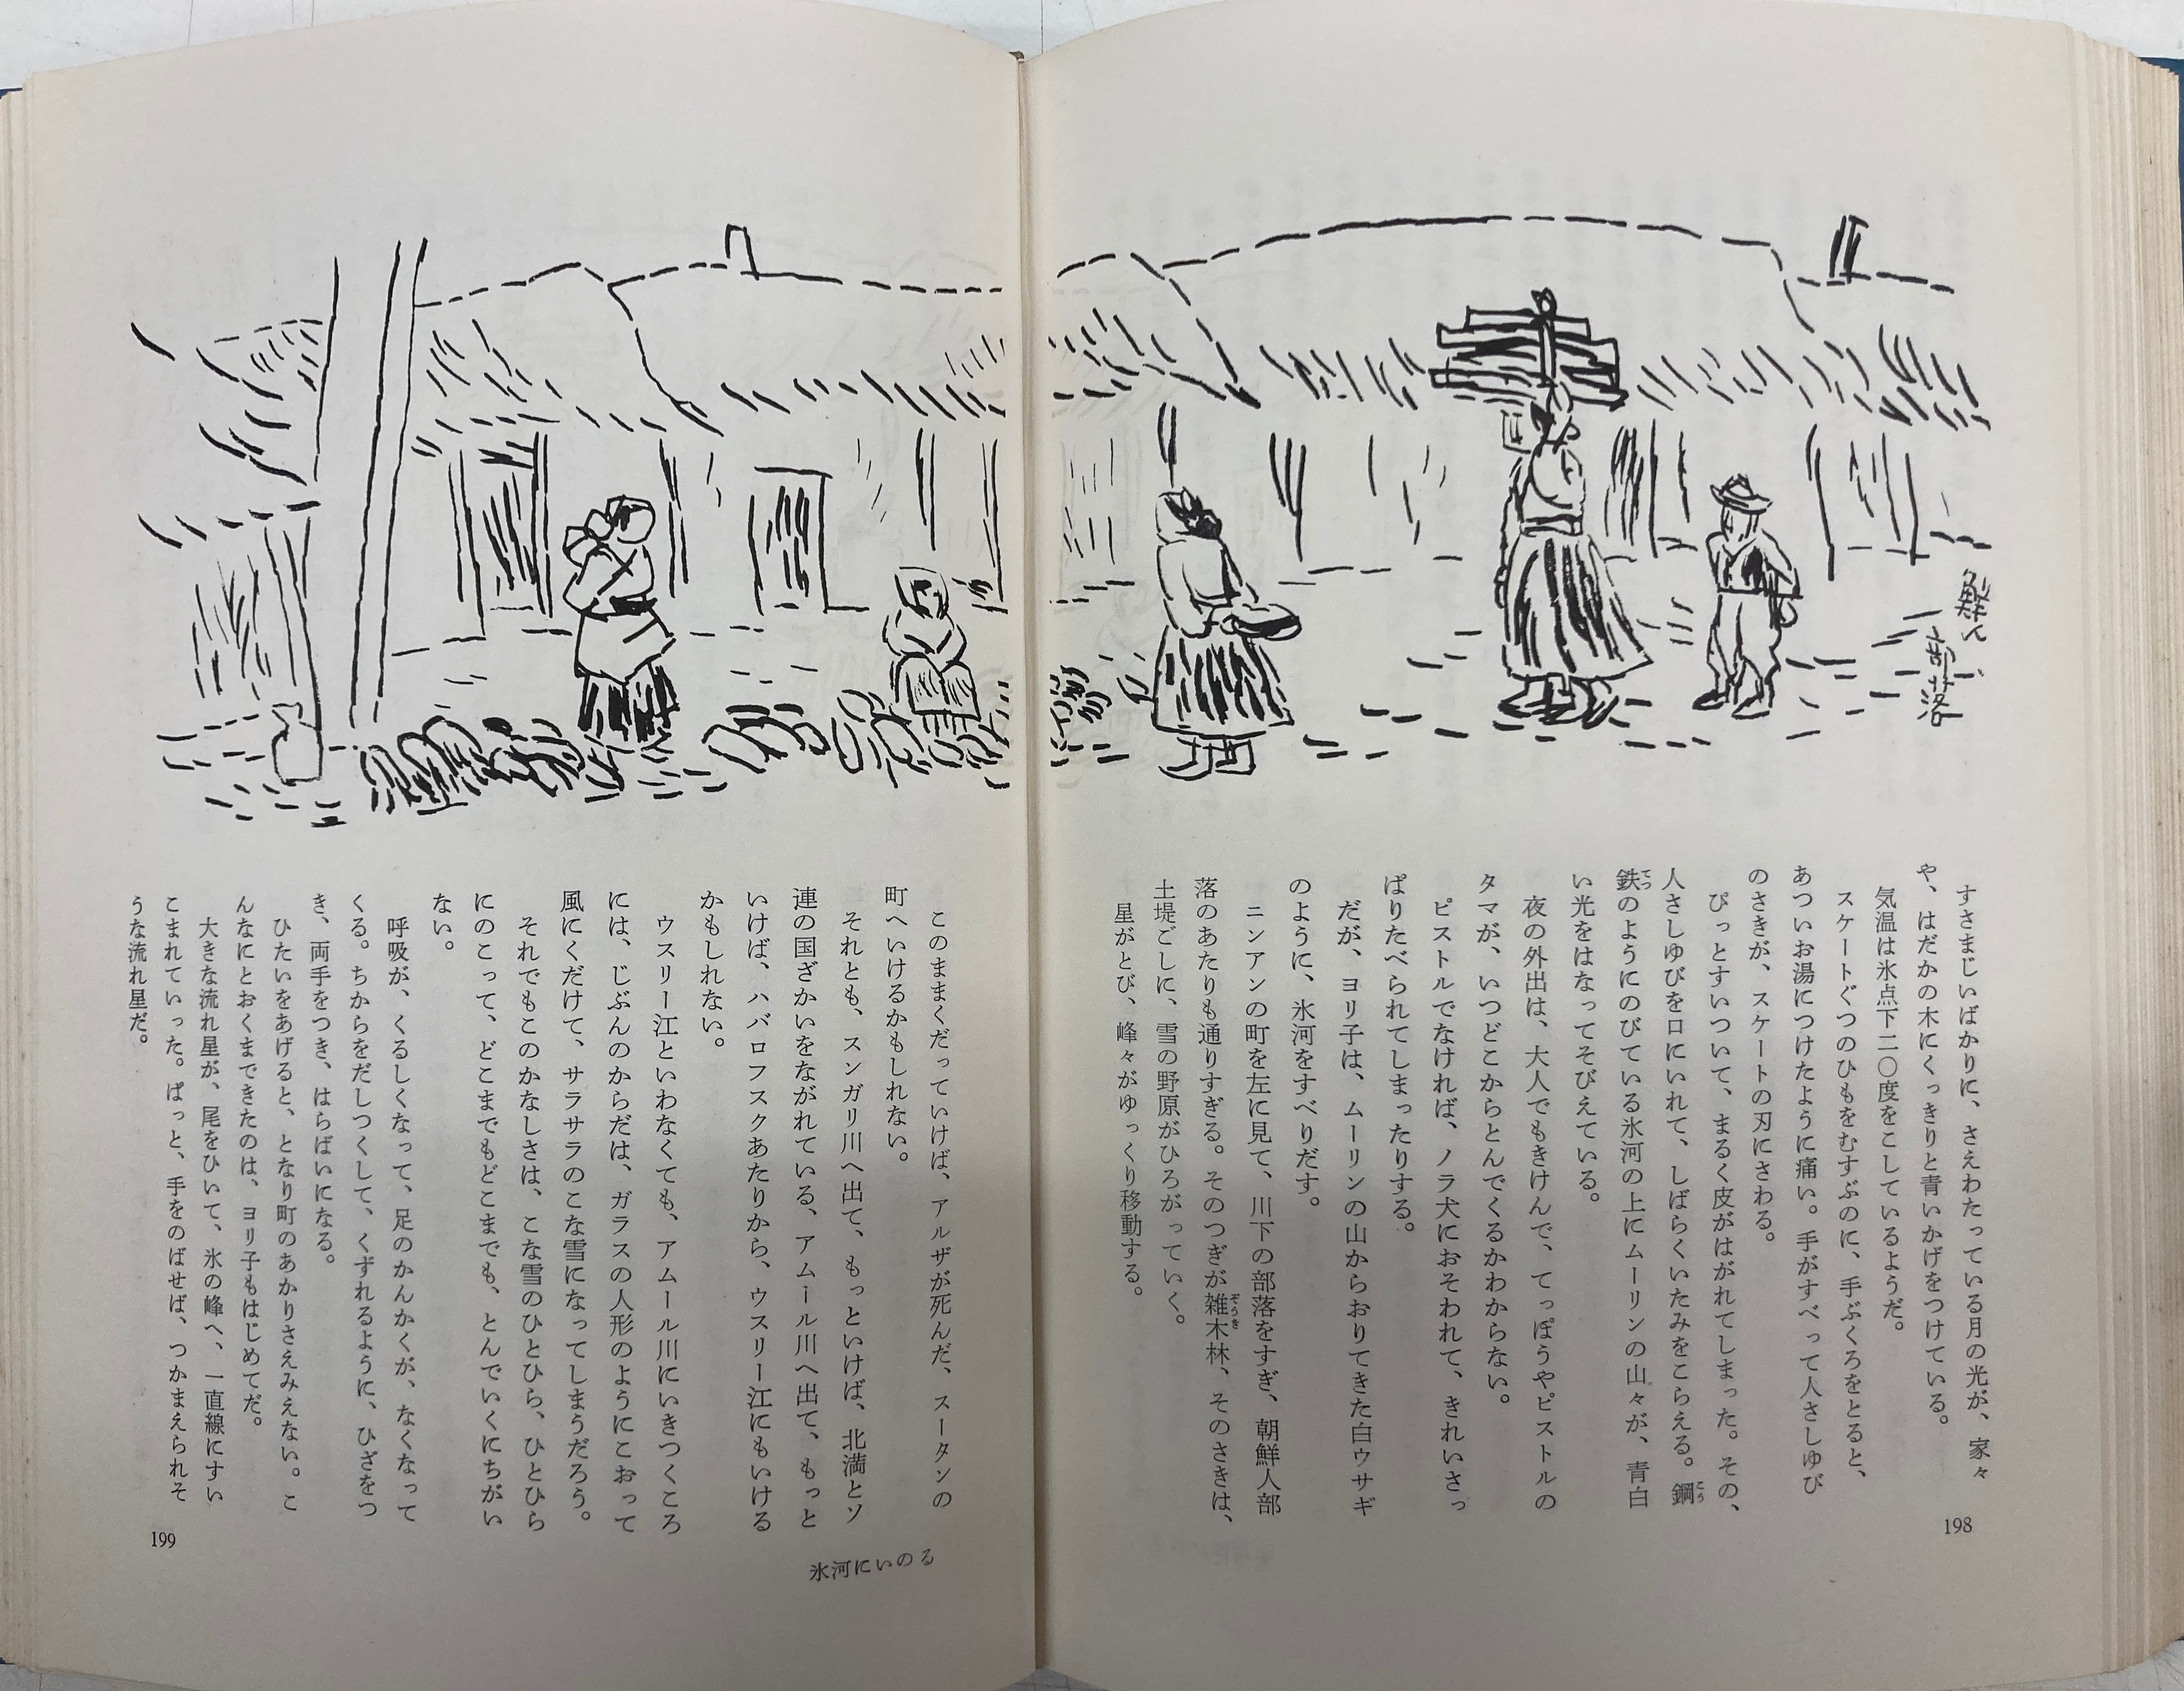 鮮人
部落
すさまじいばかりに、さえわたっている月の光が、家々
や、はだかの木にくっきりと青いかげをつけている。
気温は氷点下二〇度をこしているようだ。
スケートぐつのひもをむすぶのに、手ぶくろをとると、
あついお湯につけたように痛い。手がすべって人さしゆび
のさきが、スケートの刃にさわる。
ぴっとすいついて、まるく皮がはがれてしまった。その、
人さしゆびを口にいれて、しばらくいたみをこらえる。鋼
鉄のようにのびている氷河の上にムーリンの山々が、青白
い光をはなってそびえている。
夜の外出は、大人でもきけんで、てっぽうやピストルの
タマが、いつどこからとんでくるかわからない。
ピストルでなければ、ノラ犬におそわれて、きれいさっ
ぱりたべられてしまったりする。
だが、ヨリ子は、ムーリンの山からおりてきた白ウサギ
のように、氷河をすべりだす。
ニンアンの町を左に見て、川下の部落をすぎ、朝鮮人部
落のあたりも通りすぎる。そのつぎが雑木林、そのさきは、
土堤ごしに、雪の野原がひろがっていく。
星がとび、峰々がゆっくり移動する。
198
このままくだっていけば、アルザが死んだ、スータンの
町へいけるかもしれない。
それとも、スンガリ川へ出て、もっといけば、北満とソ
連の国ざかいをながれている、アムール川へ出て、もっと
いけば、ハバロフスクあたりから、ウスリー江にもいける
かもしれない。
ウスリー江といわなくても、アムール川にいきつくころ
には、じぶんのからだは、ガラスの人形のようにこおって
風にくだけて、サラサラのこな雪になってしまうだろう。
それでもこのかなしさは、こな雪のひとひら、ひとひら
にのこって、どこまでもどこまでも、とんでいくにちがい
ない。
呼吸が、くるしくなって、足のかんかくが、なくなって
くる。ちからをだしつくして、くずれるように、ひざをつ
き、両手をつき、はらばいになる。
ひたいをあげると、となり町のあかりさえみえない。こ
んなにとおくまできたのは、ヨリ子もはじめてだ。
大きな流れ星が、尾をひいて、氷の峰へ、一直線にすい
こまれていった。ぱっと、手をのばせば、つかまえられそ
うな流れ星だ。
199
氷河にいのる